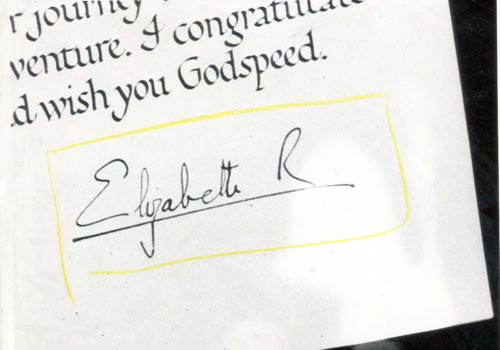 r journey
venture. I congratulate
d wish you Godspeed.
Elizabeth R